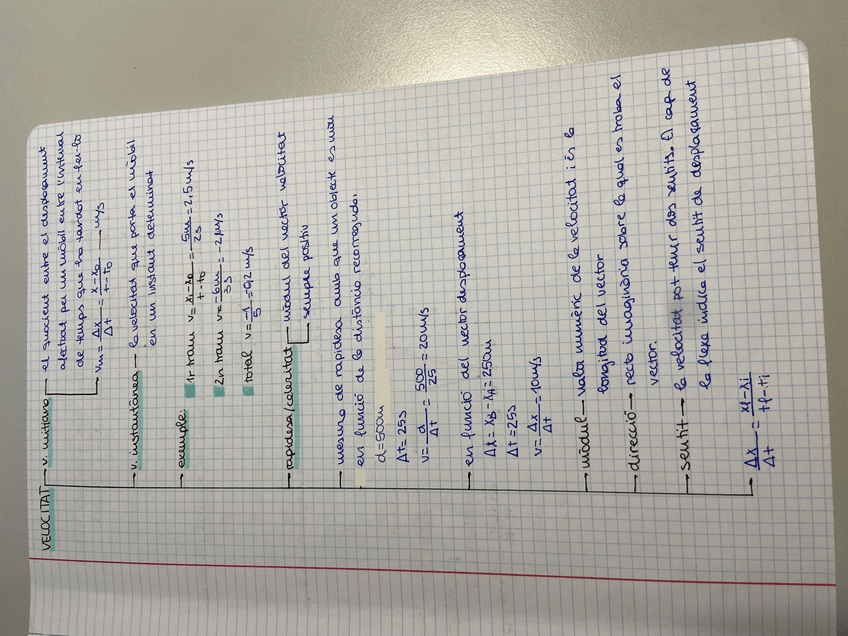 VELOCITAT
v. mitjana → el quocient entre el desplaçament
efectuat per un mòbil entre l'interval
de temps que ha tardat en fer-lo
vm = Δx/Δt = x-x₀/t-t₀ → m/s
v. instantànea → la velocitat que porta el mòbil
en un instant determinat
exemple:
1r tram v = x₁-x₀/t-t₀ = 5m/2s = 2,5 m/s
2n tram v = -6m/3s = -2m/s
total v = -1/5 = 0,2 m/s
rapidesa/celeritat → mòdul del vector velocitat
sempre positiu
mesura de rapidesa amb que un objecte es mou
en funció de la distància recorreguda.
d = 500m
Δt = 25s
v = d/Δt = 500/25 = 20m/s
en funció del vector desplaçament
Δx = xB - xA = 250m
Δt = 25s
v = Δx/Δt = 10m/s
mòdul → valor numèric de la velocitat i és la
longitud del vector
direcció → recta imaginària sobre la qual es troba el
vector.
sentit → la velocitat pot tenir dos sentits. El cap de
la flexa indica el sentit de desplaçament
Δx/Δt = xf-xi/tf-ti